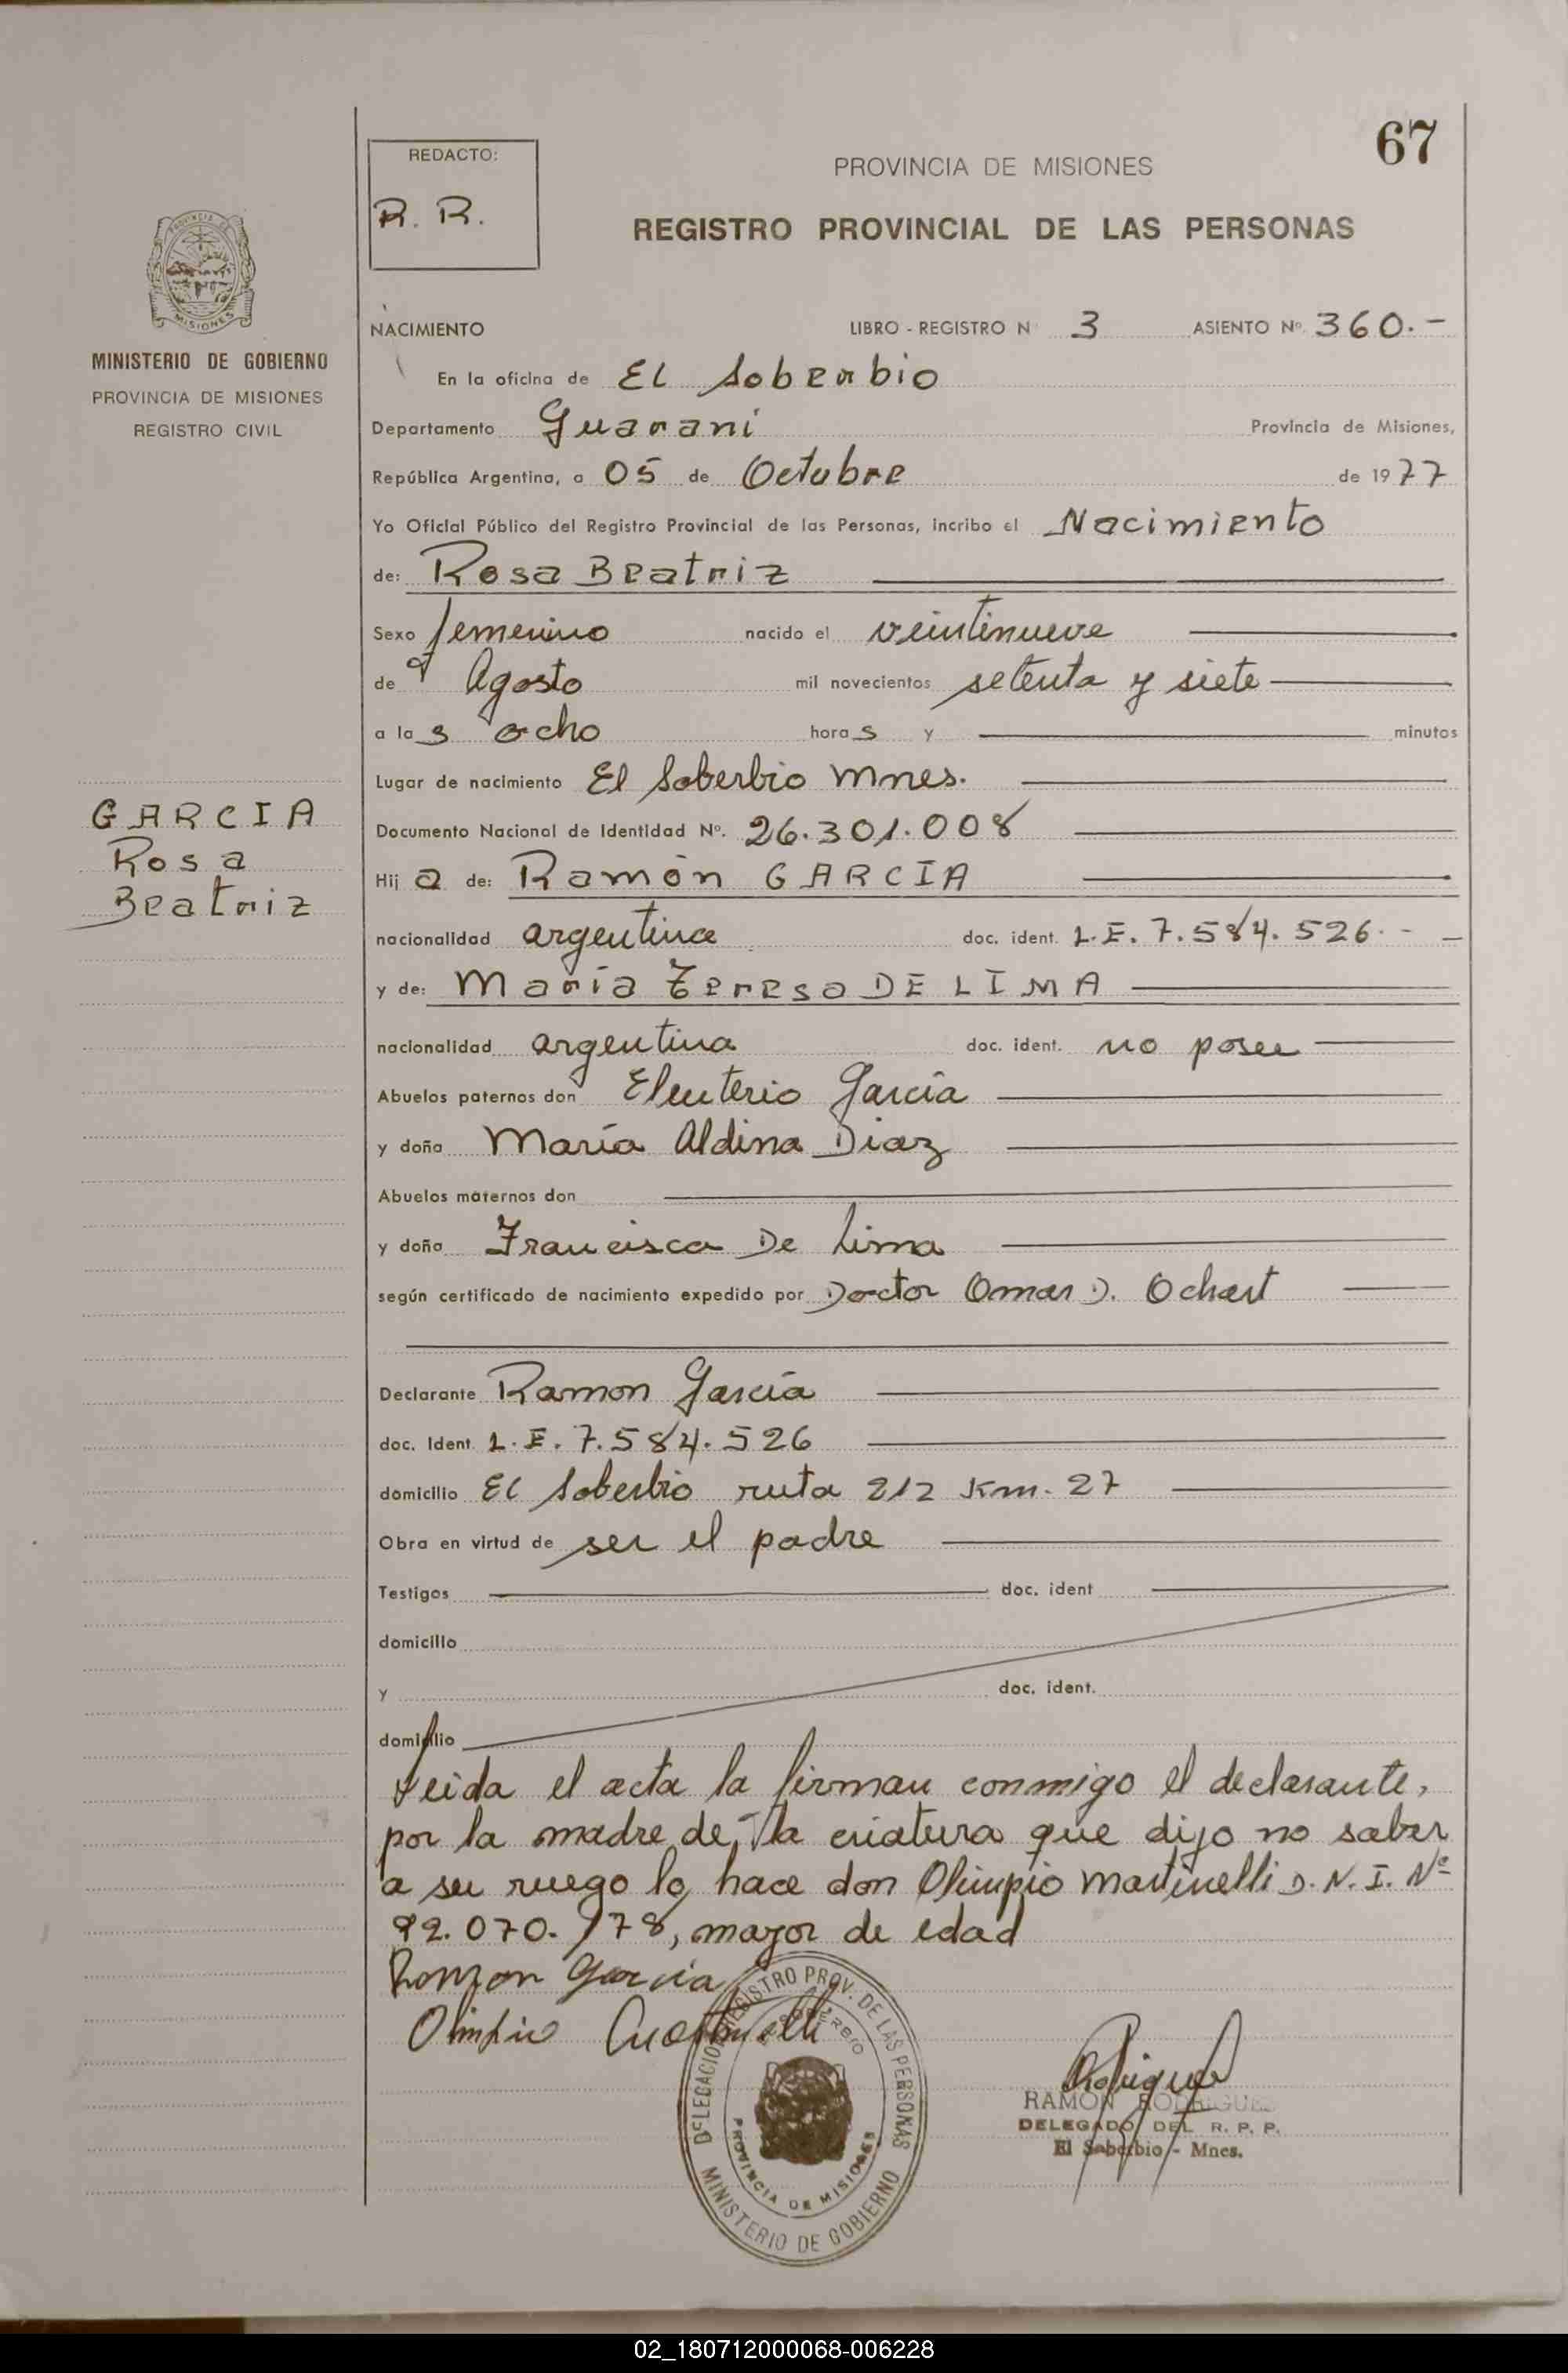 67
REDACTO:
R. R.
PROVINCIA DE MISIONES
REGISTRO PROVINCIAL DE LAS PERSONAS
MINISTERIO DE GOBIERNO
PROVINCIA DE MISIONES
REGISTRO CIVIL
NACIMIENTO LIBRO - REGISTRO N° 3 ASIENTO Nº 360.-
En la oficina de El Soberbio
Departamento Guaraní Provincia de Misiones,
República Argentina, a 05 de Octubre de 1977
Yo Oficial Público del Registro Provincial de las Personas, incribo el Nacimiento
de: Rosa Beatriz
Sexo femenino nacido el veintinueve
de Agosto mil novecientos setenta y siete
a las ocho horas y minutos
Lugar de nacimiento El Soberbio Mnes.
GARCIA
Rosa
Beatriz
Documento Nacional de Identidad Nº. 26.301.008
Hija de: Ramón GARCIA
nacionalidad argentina doc. ident. L.E. 7.584.526.-
y de: María Teresa DE LIMA
nacionalidad argentina doc. ident. no posee
Abuelos paternos don Eleuterio García
y doña María Aldina Diaz
Abuelos maternos don
y doña Francisca De Lima
según certificado de nacimiento expedido por Doctor Omar D. Ochart
Declarante Ramon García
doc. Ident. L.E. 7.584.526
domicilio El Soberbio ruta 212 Km. 27
Obra en virtud de ser el padre
Testigos doc. ident
domicilio
y doc. ident.
domicilio
Leida el acta la firman conmigo el declarante,
por la madre de la criatura que dijo no saber
a su ruego lo hace don Olimpio Martinelli D.N.I. Nº
92.070.178, mayor de edad
Ramon Garcia
Olimpio
DELEGACION REGISTRO PROV. DE LAS PERSONAS
EL SOBERBIO
PROVINCIA DE MISIONES
MINISTERIO DE GOBIERNO
RAMON RODRIGUES
DELEGADO DEL R. P. P.
El Soberbio - Mnes.
02_180712000068-006228